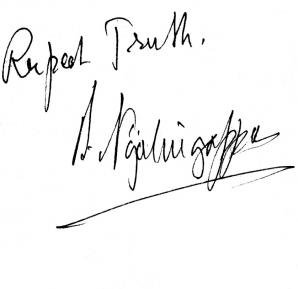 Respect Truth.
S. Nijalingappa